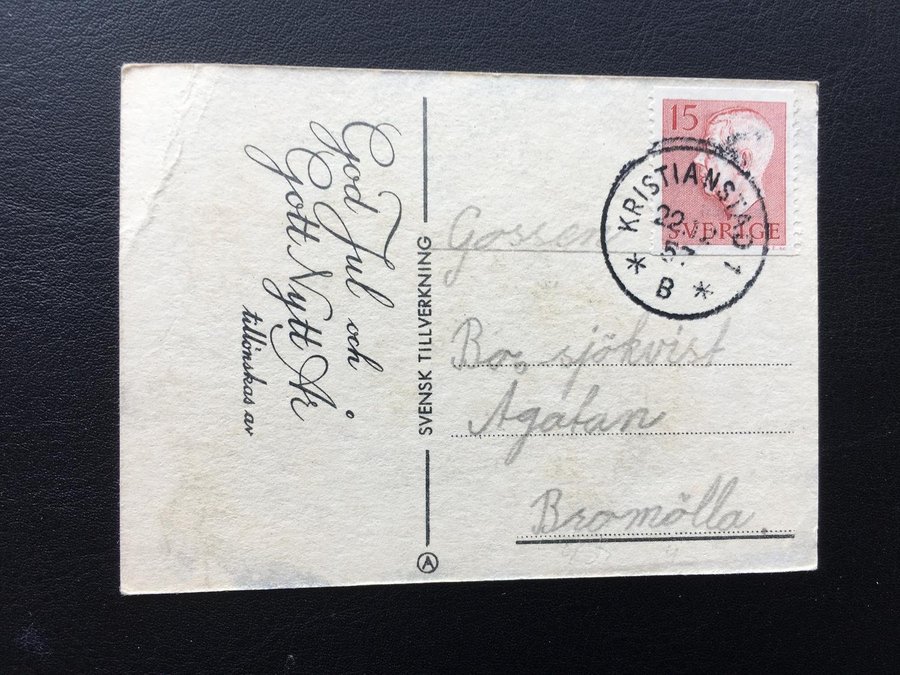 God Jul och
Gott Nytt År
tillönskas av
SVENSK TILLVERKNING
A
15
SVERIGE
KRISTIANSTAD 1
22
B
Gossen
Bo, sjökvist
Agatan
Bromölla